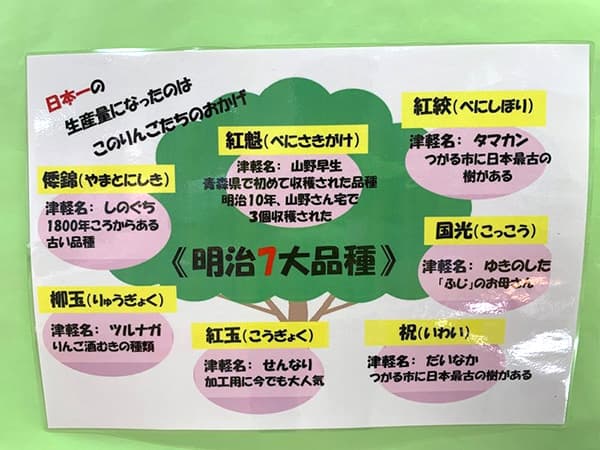 日本一の
生産量になったのは
このりんごたちのおかげ
紅魁(べにさきがけ)
津軽名: 山野早生
青森県で初めて収穫された品種
明治10年、山野さん宅で
3個収穫された
紅絞(べにしぼり)
津軽名: タマカン
つがる市に日本最古の
樹がある
倭錦(やまとにしき)
津軽名: しのぐち
1800年ころからある
古い品種
国光(こっこう)
津軽名: ゆきのした
「ふじ」のお母さん
《明治7大品種》
柳玉(りゅうぎょく)
津軽名: ツルナガ
りんご酒むきの種類
紅玉(こうぎょく)
津軽名: せんなり
加工用に今でも大人気
祝(いわい)
津軽名: だいなか
つがる市に日本最古の樹がある